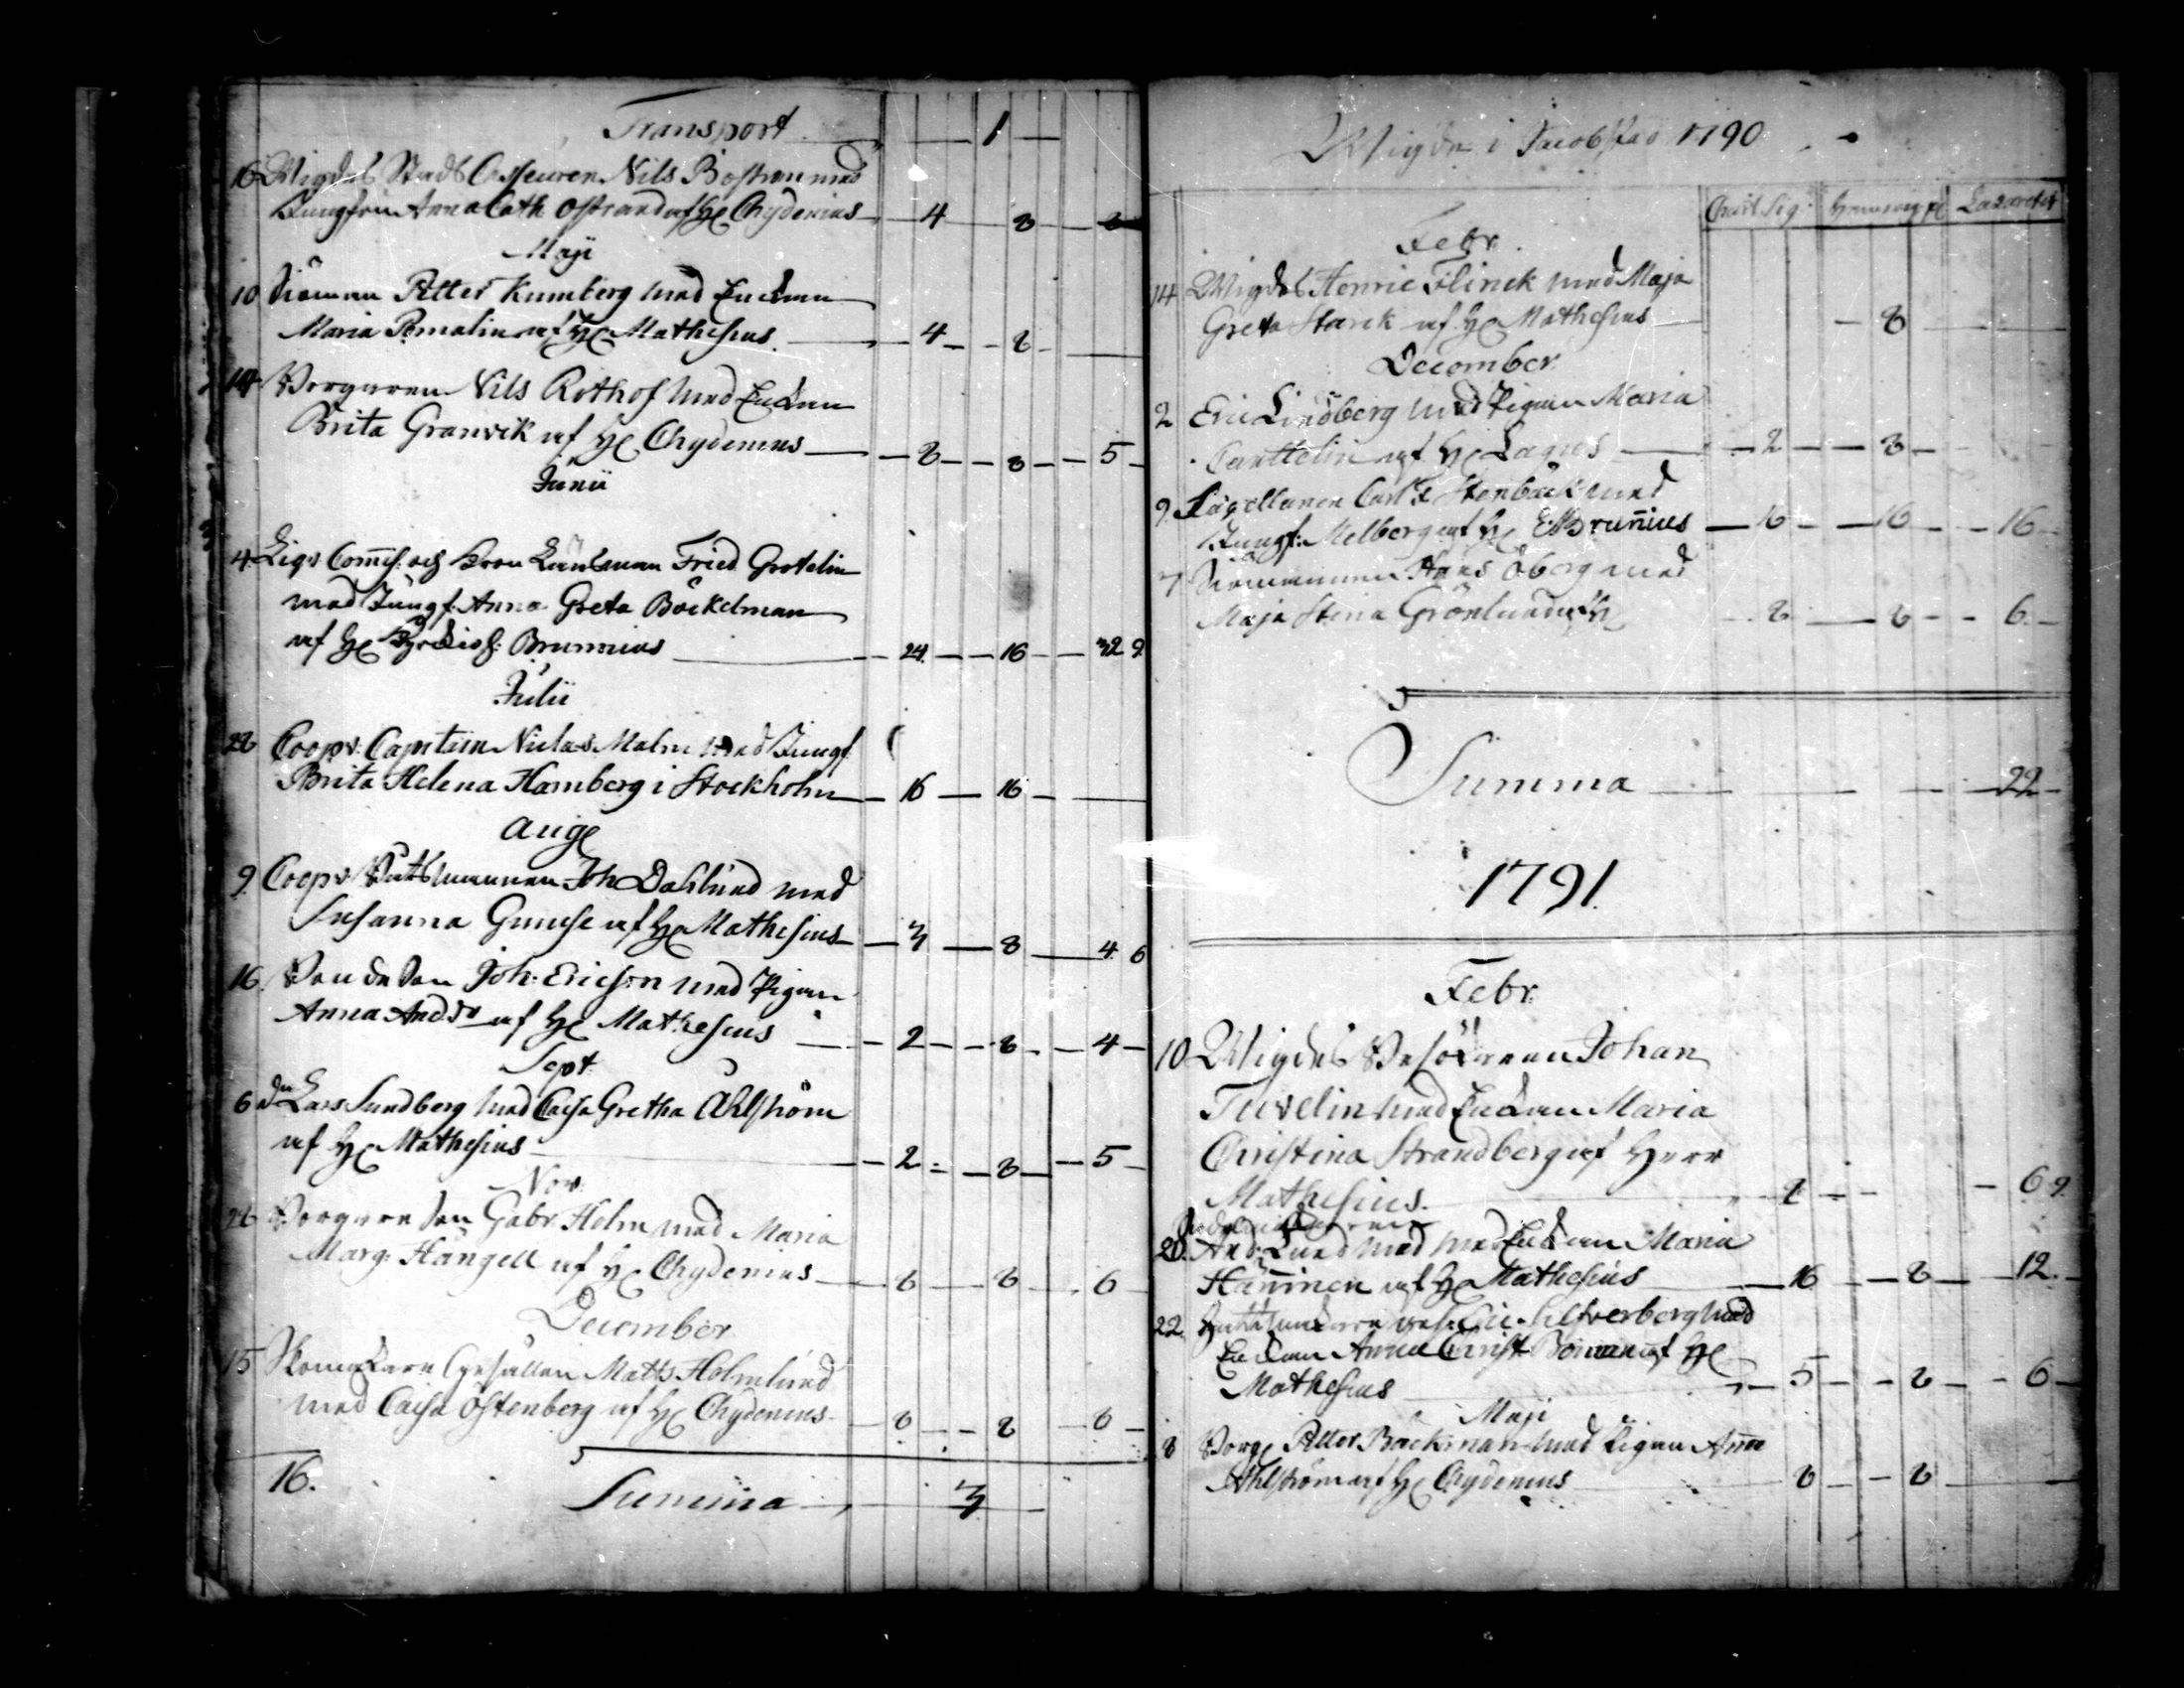 Transport — 1 —
16 Wigdes Stads Casseuren Nils Boström med
Jungfrun Anna Cath Östrand af H Chydenius — 4 — 8 — 8
Maji
10 Siöman Petter Kumberg med Enckan
Maria Romalin af H Mathesius — 4 — 8 —
14 Borgaren Nils Rothof med Enckan
Brita Granvik af H Chydenius — 8 — 8 — 5 —
Junii
4 och Fried Grotelin
med Jungf: Anna Greta Böckelman
af H Brunnius — 24 — 16 — 32 9
Julii
28 Coopv: Capitein Niclas Malm med Jungf
Brita Helena Hamberg i Stockholm — 16 — 16 —
Aug
9. Coopv Joh Dahlund med
Susanna af H Mathesius — 3 — 8 — 4 6
16 Bondeson Joh: Ericsson med Pigan
Anna And:dr af H Mathesius — 2 — 8 — 4 —
Sept
6 Lars Sundberg med Caisa Gretha Åhlström
af H Mathesius — 2 — 8 — 5 —
Nov:
28 Borgare Son Gabr: Holm med Maria
Marg: Hängell af H Chydenius — 8 — 8 — 6
December
15 Skomakare Gesällen Matts Holmlund
med Caisa Östenberg af H Chydenius — 8 — 8 — 8 —
16. Summa — 3 —
Wigde i Jacobstad 1790
Charit Sig: Lazarettet
Febr
14 Wigdes Henric Flinck med Maja
Greta Starck af H Mathesius — 8 —
December
2 Eric Lindberg med Pigan Maria
Canttelin af H Lagus — 2 — 8 —
9. Capellanen Carl F Stenbäck med
Jungf: Melberg af H Brunius — 16 — 16 — 16 —
7 Siömannen Hans Öberg med
Maja Stina Grönlund af H — 8 — 8 — 6 —
Summa — 22 —
1791.
Febr.
10 Wigdes Johan
Tuvelin med Enckan Maria
Christina Strandberg af Herr
Mathesius. — 2 — 6 9.
20. And: Lund med med Enckan Maria
Häninen af H Mathesius — 16 — 8 — 12. —
22. Eric Silfverberg med
Enckan Anna Christ: af H
Mathesius — 5 — 8 — 6 —
Maji
8 Borg Petter Backman med Pigan Anna
Åhlström af H Chydenius — 8 — 8 —